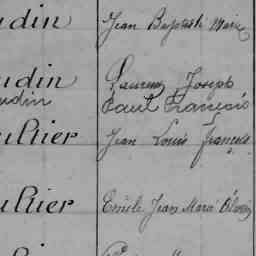 udin Jean Baptiste Marie
udin Laurent Joseph
udin Paul François
ultier Jean Louis François
ultier Emile Jean Marie